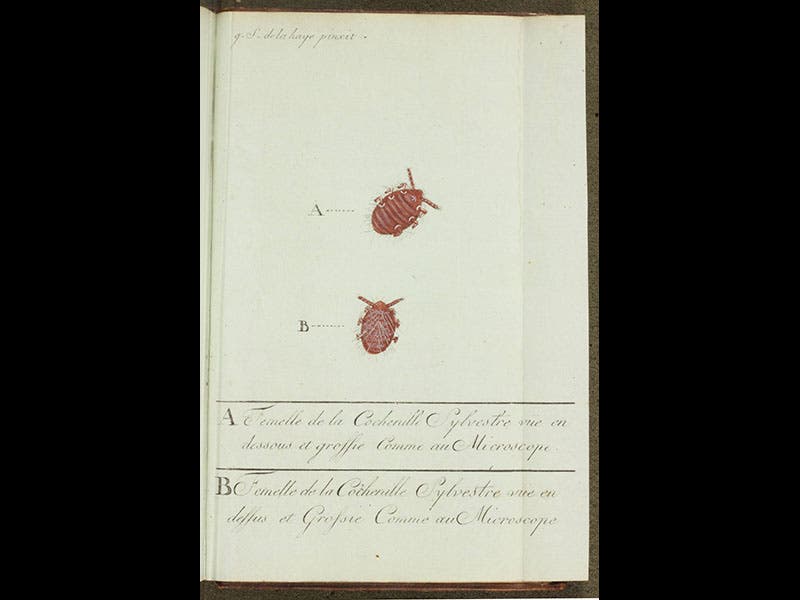 g. S. delahaye pinxit.
A
B
A Femelle de la Cochenille Sylvestre vue en
dessous et grossie Comme au Microscope.
B Femelle de la Cochenille Sylvestre vue en
dessus et Grossie Comme au Microscope